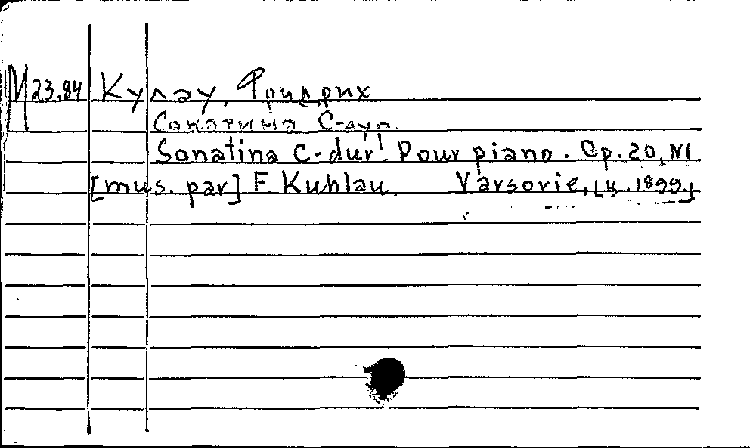 М23.84 Кулау, Фридрих
Сонатина C-дур.
Sonatina C-dur! Pour piano. Op. 20, N1
[mus. par] F. Kuhlau. Varsovie, [ц. 1899.]